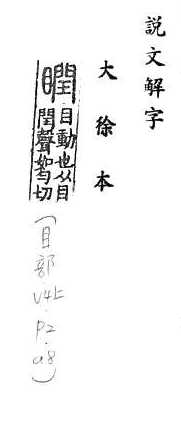 説文解字
大徐本
瞤
目動也从目
閏聲如匀切
(目部
V4上
P2
a8)